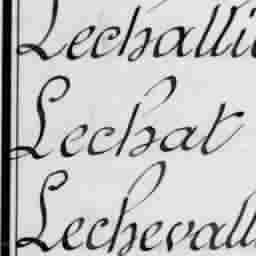 Lechalli
Lechat
Lechevall